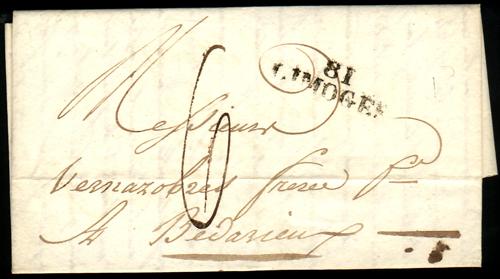 81
LIMOGES
Messieurs
6
Vernazobres frères
A Bédarieux